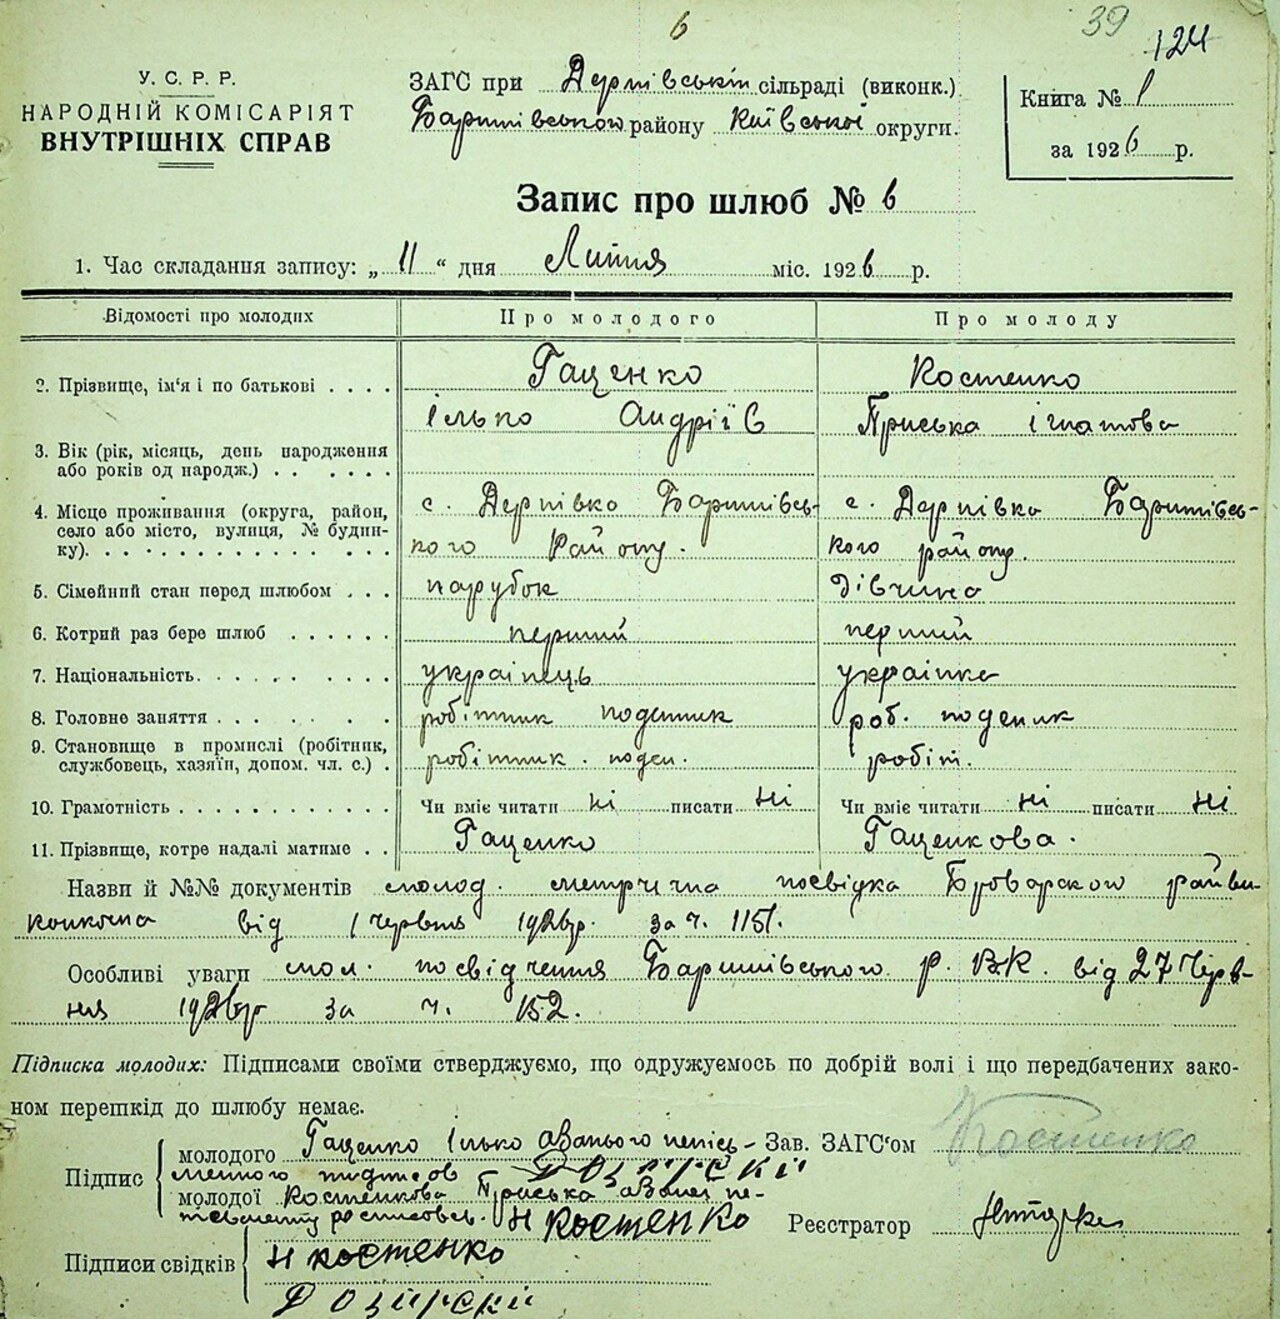 6
39
124
У. С. Р. Р.
НАРОДНІЙ КОМІСАРІЯТ
ВНУТРІШНІХ СПРАВ
ЗАГС при Дернівській сільраді (виконк.)
Баришівського району Київської округи.
Книга № 1
за 1926 р.
Запис про шлюб № 6
1. Час складання запису: „ 11 “ дня Липня міс. 1926 р.
Відомості про молодих Про молодого Про молоду
2. Прізвище, ім‘я і по батькові . . . . Гаценко Костенко
Ілько Андріїв Приська Ігнатова
3. Вік (рік, місяць, день народження
або років од народж.) . . . . . .
4. Місце проживання (округа, район, с. Дернівка Баришівсь- с. Дернівка Баришівсь-
село або місто, вулиця, № будин-
ку). кого Району. кого району.
5. Сімейний стан перед шлюбом . . . парубок дівчина
6. Котрий раз бере шлюб . . . . . . перший перший
7. Національність. українець українка
8. Головне заняття робітник поденник роб. поденик
9. Становище в промислі (робітник,
службовець, хазяїн, допом. чл. с.) . робітник. поден. робіт.
10. Грамотність Чи вміє читати ні писати ні Чи вміє читати ні писати ні
11. Прізвище, котре надалі матиме . . Гаценко Гаценкова.
Назви й №№ документів молод. метрична посвідка Броварского райви-
конкома від 1 червня 1926р. за ч. 1151.
Особливі уваги мол. посвідчення Баришівського Р.В.К. від 27 Черв-
ня 1926р за ч. 152.
Підписка молодих: Підписами своїми стверджуємо, що одружуємось по добрій волі і що передбачених зако-
ном перешкід до шлюбу немає.
Підпис
молодого Гаценко Ілько а за нього непісь-
менного підписав
молодої Костенкова Приська а за неї не-
Н Костенко
Зав. ЗАГС‘ом Костенко
Реєстратор
Підписи свідків Н Костенко